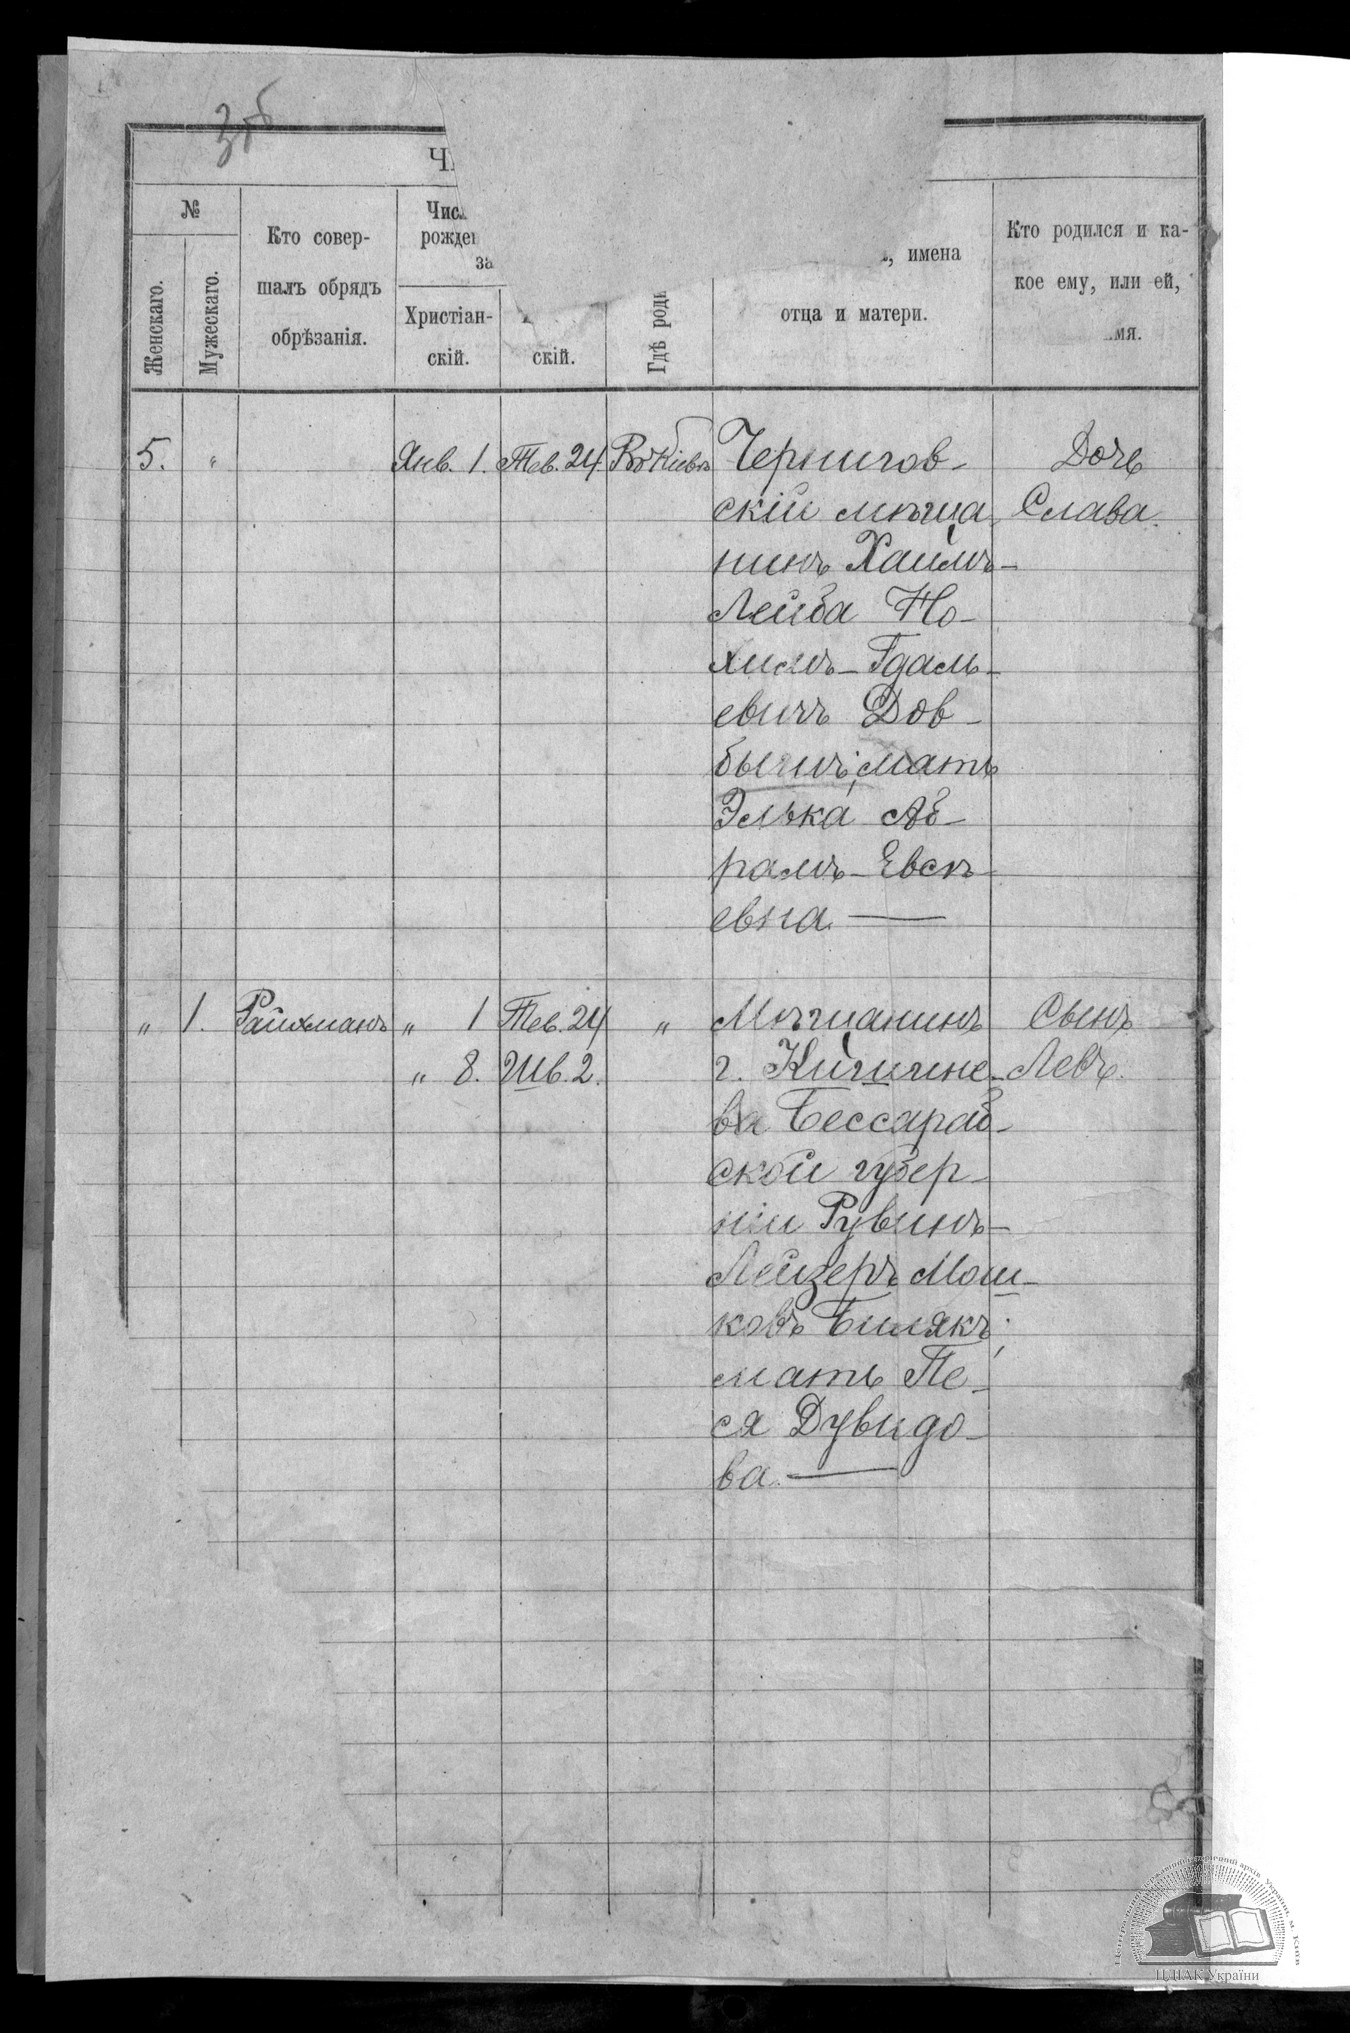 Ч
№
Женскаго.
Мужескаго.
Кто совер-
шалъ обрядъ
обрѣзанія.
Числ
рожде
за
Христіан-
скій.
скій.
Гдѣ роди
имена
отца и матери.
Кто родился и ка-
кое ему, или ей,
мя.
5. " Янв. 1. Тев. 24. Въ Кіевѣ Чернигов- Дочь
скій мѣща- Слава.
нинъ Хаимъ-
Лейба Но-
химъ-Гдаль-
евичъ Дов-
бышъ; мать
Элька Аб-
рамъ-Евсѣ-
евна. —
" 1. Райхманъ " 1 Тев. 24 " Мѣщанинъ Сынъ
" 8. Шв. 2. г. Кишине- Левъ.
ва Бессараб-
ской губер-
ніи Рувинъ-
Лейзеръ Мош-
ковъ Билякъ;
мать Пе-
ся Дувидо-
ва. —
ЦДІАК України